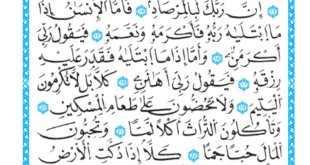 إِنَّ رَبَّكَ لَبِالْمِرْصَادِ ﴿١٤﴾ فَأَمَّا الْإِنْسَانُ إِذَا
مَا ابْتَلَاهُ رَبُّهُ فَأَكْرَمَهُ وَنَعَّمَهُ ﴿١٥﴾ فَيَقُولُ رَبِّي
أَكْرَمَنِ وَأَمَّا إِذَا مَا ابْتَلَاهُ فَقَدَرَ عَلَيْهِ
رِزْقَهُ فَيَقُولُ رَبِّي أَهَانَنِ كَلَّا بَلْ لَا تُكْرِمُونَ
الْيَتِيمَ وَلَا تَحُضُّونَ عَلَى طَعَامِ الْمِسْكِينِ
وَتَأْكُلُونَ التُّرَاثَ أَكْلًا لَمًّا وَتُحِبُّونَ
الْمَالَ حُبًّا جَمًّا كَلَّا إِذَا دُكَّتِ الْأَرْضُ